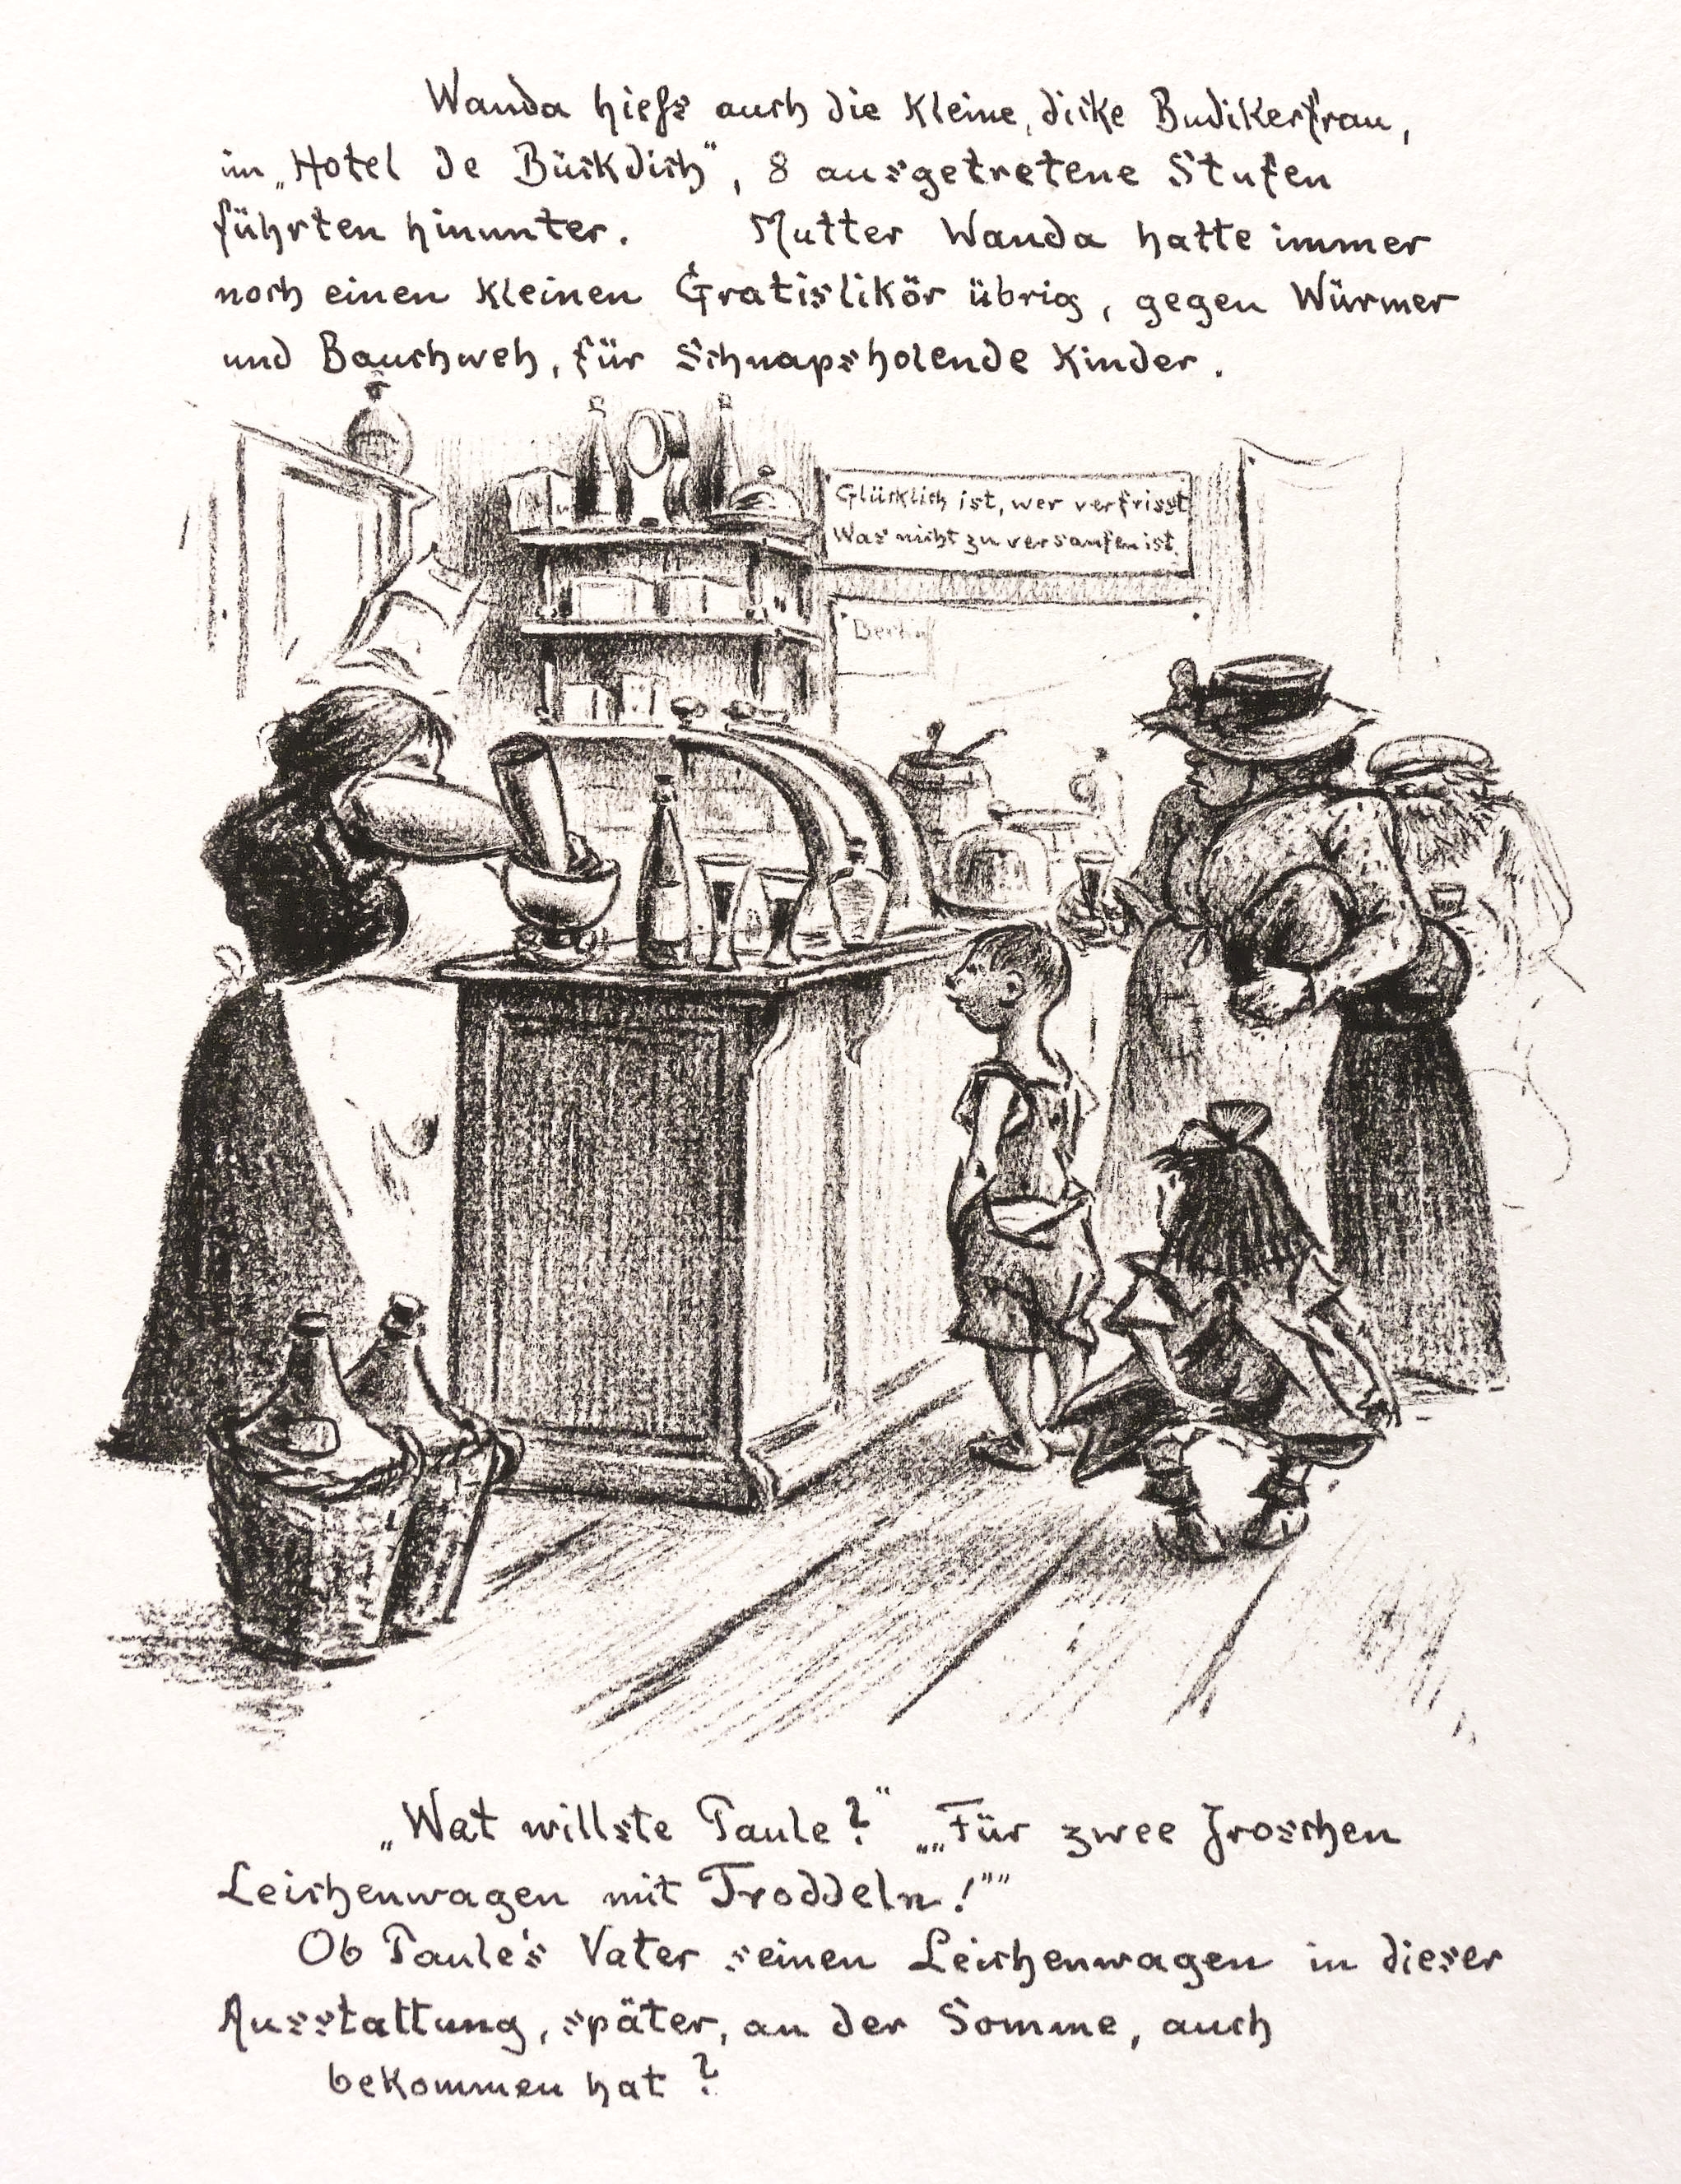 Wanda hiefs auch die kleine, dicke Budikerfrau,
im „Hotel de Bückdich", 8 ausgetretene Stufen
führten hinunter. Mutter Wanda hatte immer
noch einen kleinen Gratislikör übrig, gegen Würmer
und Bauchweh, für Schnapsholende Kinder.
Glücklich ist, wer verfrisst
Was nicht zu versaufen ist.
Berlin
„Wat willste Paule?" „„Für zwee Jroschen
Leichenwagen mit Troddeln!""
Ob Paule's Vater seinen Leichenwagen in dieser
Ausstattung, später, an der Somme, auch
bekommen hat?